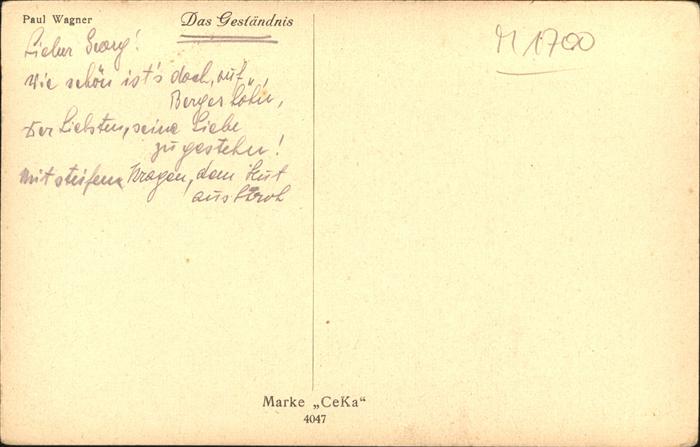 Paul Wagner
Das Geständnis
Lieber Georg!
Wie schön ist's doch, auf
Berges Höh'n,
Der Liebsten, seine Liebe
zu gestehn!
Mit steifem Kragen, dem Hut
aus Stroh
M 1700
Marke „CeKa“
4047